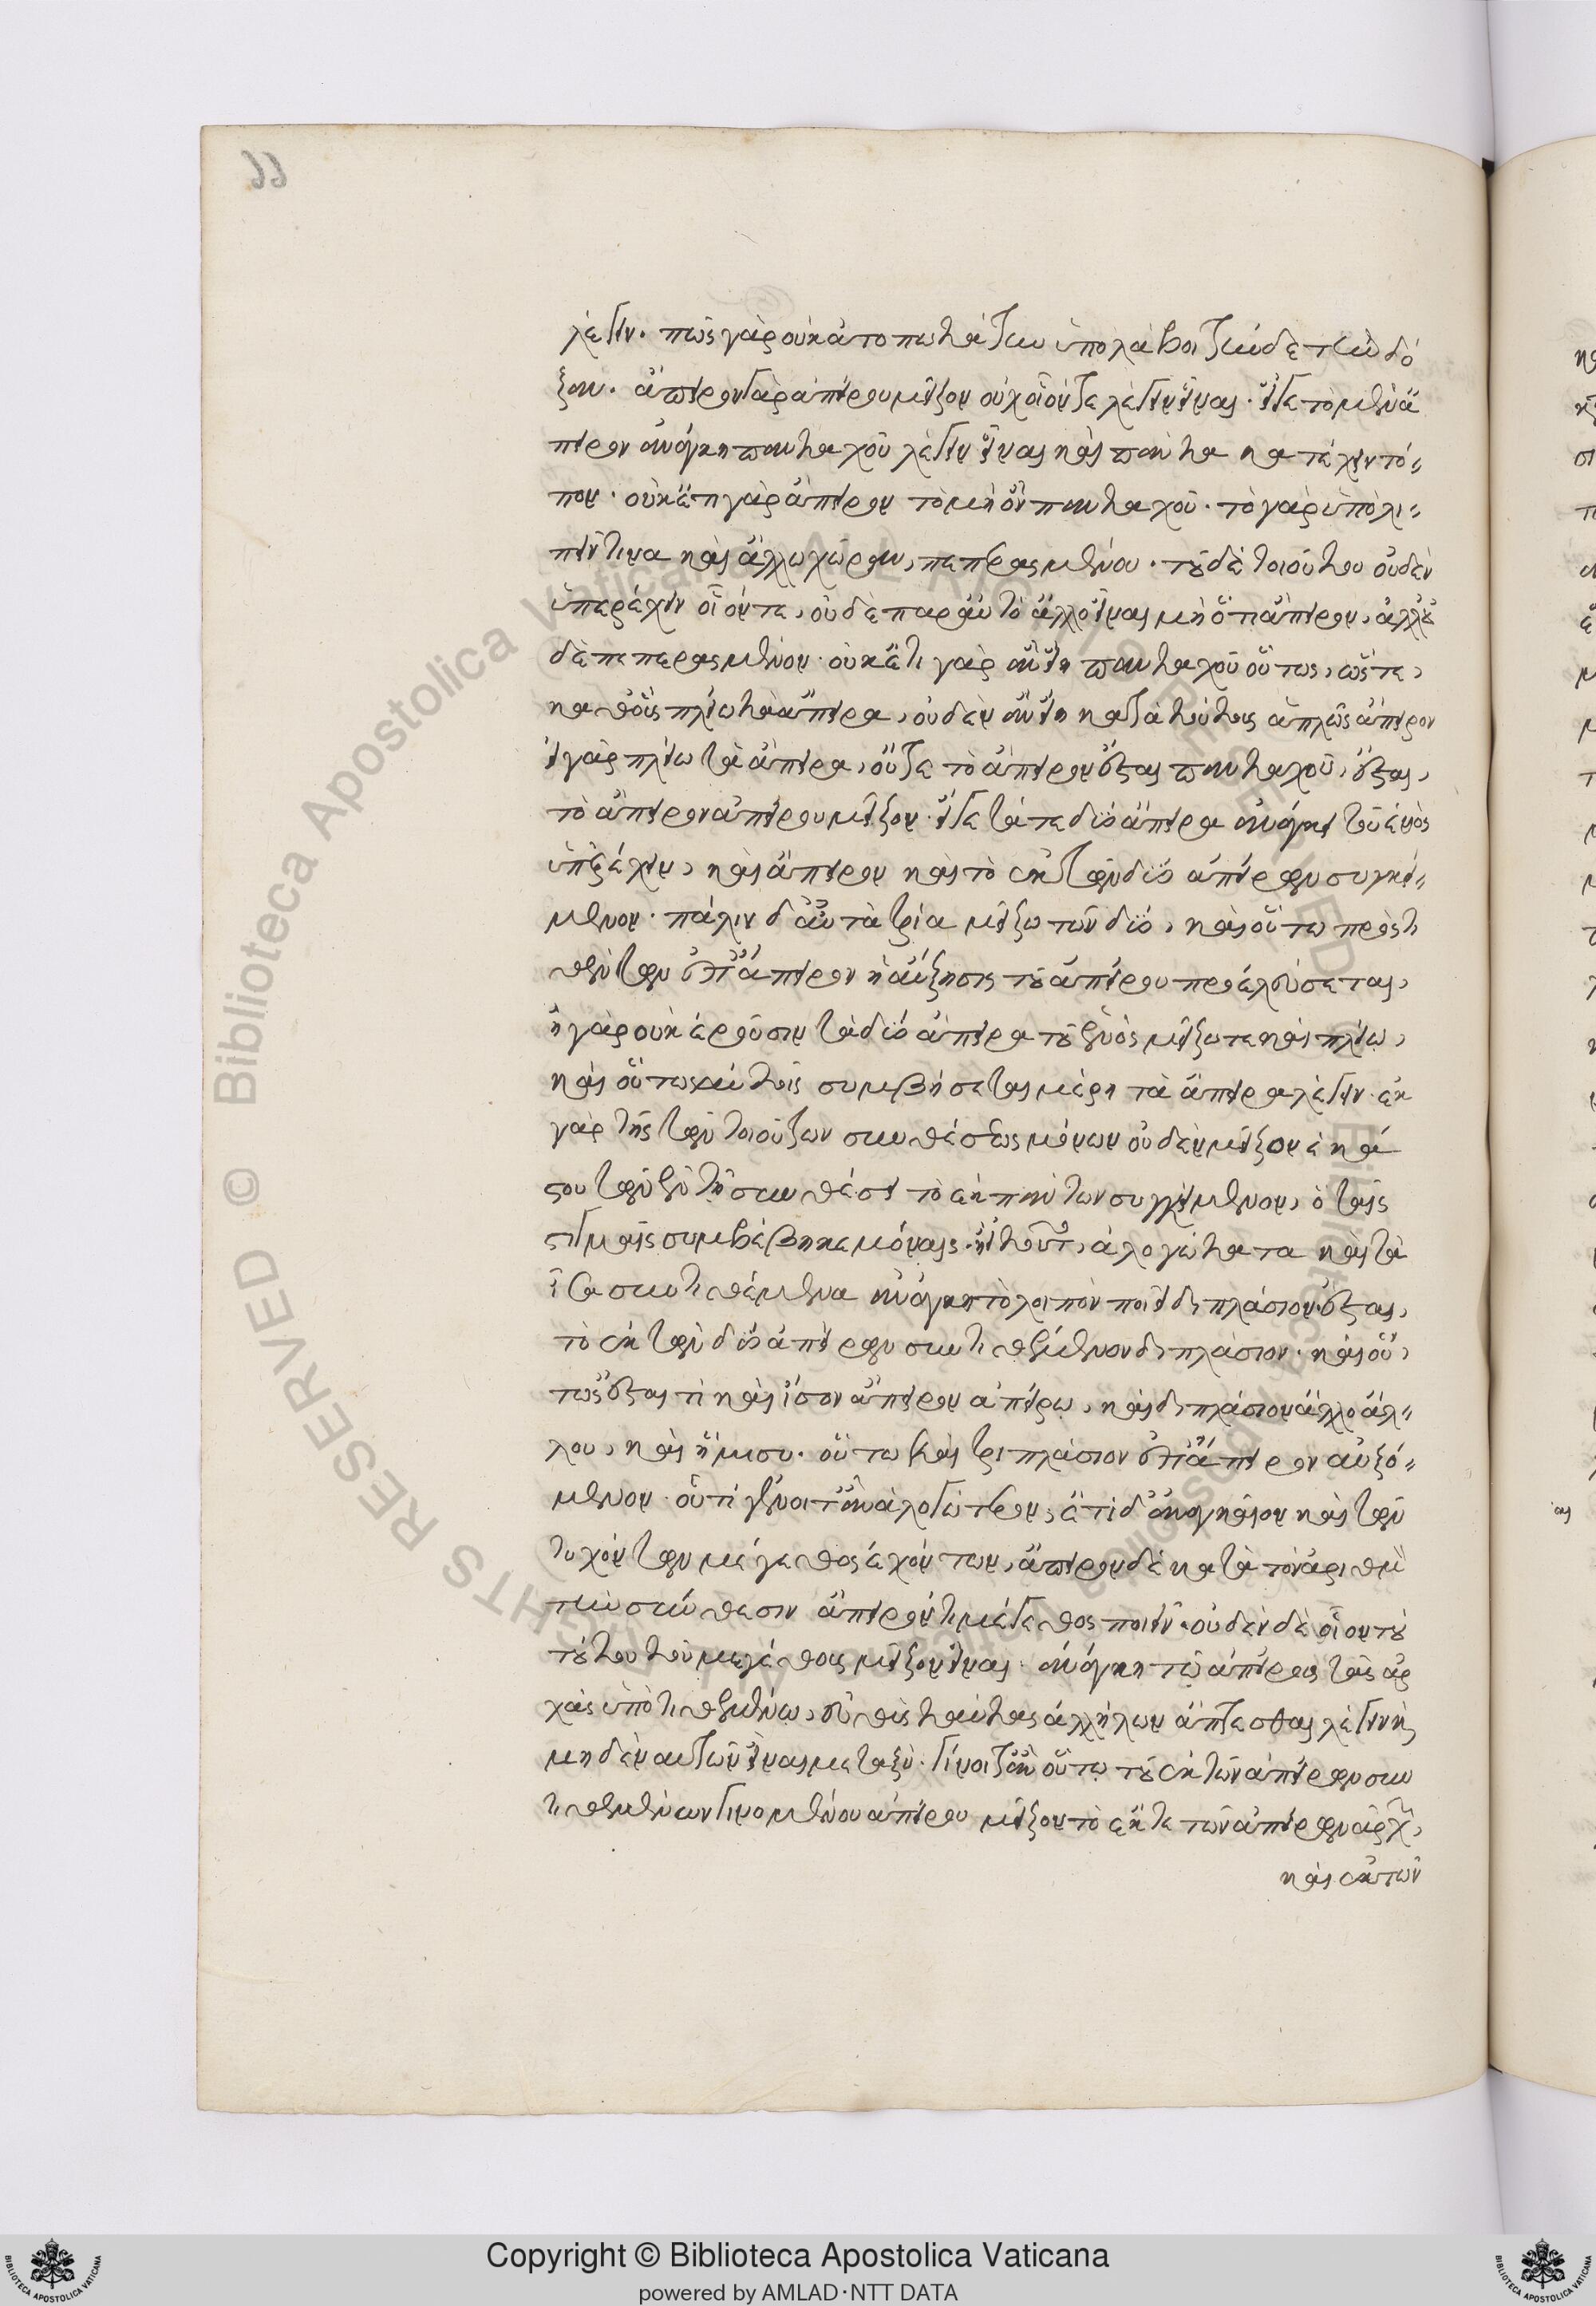 λέγειν. πῶς γὰρ οὐκ ἀτοπωτάτην ὑπολάβοι τήνδε τὴν δό
ξαν. ἄπειρον γὰρ ἀπείρου μεῖζον οὐχ οἷόν τε λέγειν εἶναι. εἴγε τὸ μὲν ἄ
πειρον ἀνάγκη πανταχοῦ λέγειν εἶναι καὶ πάντα κατέχειν τό-
πον. οὐκέτι γὰρ ἄπειρον τὸ μὴ ὂν πανταχοῦ. τὸ γὰρ ὑπολι-
πεῖν τινα καὶ ἄλλῳ χῶραν, πεπερασμένου. τοῦ δὲ τοιούτου οὐδὲν
ὑπερέχειν οἷόν τε, οὐδὲ παρ' αὐτὸ ἄλλο εἶναι μὴ ὅτι ἄπειρον, ἀλλ' οὐ
δὲ πεπερασμένον. οὐκέτι γὰρ ἂν εἴη πανταχοῦ οὕτως, ὥστε,
καθ' οὓς πλείω τὰ ἄπειρα, οὐδὲν ἂν εἴη κατὰ τούτους ἁπλῶς ἄπειρον
εἰ γὰρ πλείω τὰ ἄπειρα, οὔτε τὸ ἄπειρον ἔσται πανταχοῦ, ἔσται,
τὸ ἄπειρον ἀπείρου μεῖζον. εἴγε τά τε δύο ἄπειρα ἀνάγκη τοῦ ἑνὸς
ὑπερέχειν, καὶ ἄπειρον καὶ τὸ ἐκ τῶν δύο ἀπείρων συγκεί-
μενον. πάλιν δ' αὖ τὰ τρία μείζω τῶν δύο, καὶ οὕτω προστι
θέντων ἐπ' ἄπειρον ἡ αὔξησις τοῦ ἀπείρου προελεύσεται,
ἢ γὰρ οὐκ ἐροῦσιν τὰ δύο ἄπειρα τοῦ ἑνὸς μείζω τε καὶ πλείω,
καὶ οὕτως αὐτοῖς συμβήσεται μέρη τὰ ἄπειρα λέγειν. ἐκ
γὰρ τῆς τῶν τοιούτων συνθέσεως μόνων οὐδὲν μεῖζον ἑκά
στου τῶν ἐν τῇ συνθέσει τὸ ἐκ πάντων συγκείμενον, ὃ ταῖς
στιγμαῖς συμβέβηκε μόναις. εἰ τοῦτ', ἀλογώτατα καὶ τὰ
ἴσα συντιθέμενα ἀνάγκη τὸ λοιπὸν ποιεῖ διπλάσιον. ἔσται,
τὸ ἐκ τῶν δύο ἀπείρων συντιθέμενον διπλάσιον. καὶ οὕ,
τως ἔσται τι καὶ ἴσον ἄπειρον ἀπείρῳ, καὶ διπλάσιον ἄλλο ἄλ-
λου, καὶ ἥμισυ. οὕτω καὶ τριπλάσιον ἐπ' ἄπειρον αὐξό-
μενον. οὗ τί γένοιτ' ἂν ἀλογώτερον, ἔτι δ' ἀναγκαῖον καὶ τῶν
τυχόντων μέγεθος ἐχόντων, ἄπειρον δὲ κατὰ τὸν ἀριθμὸν
τὴν σύνθεσιν ἄπειρόν τι μέγεθος ποιεῖν. οὐδὲν δὲ οἷον τοῦ
τούτου τοῦ μεγέθους μεῖζον εἶναι. ἀνάγκη τῷ ἀπείρους τὰς ἀρ
χὰς ὑποτιθεμένῳ, εὐθὺς ταύτας ἀλλήλων ἅπτεσθαι λέγειν καὶ
μηδὲν αὐτῶν εἶναι μεταξύ. γίνοιτ' ἂν οὕτω τοῦ ἐκ τῶν ἀπείρων συν
τιθεμένων γινομένου ἀπείρου μεῖζον τὸ ἔκ τε τῶν ἀπείρων ἀρχῶν,
καὶ ἐκ τῶν